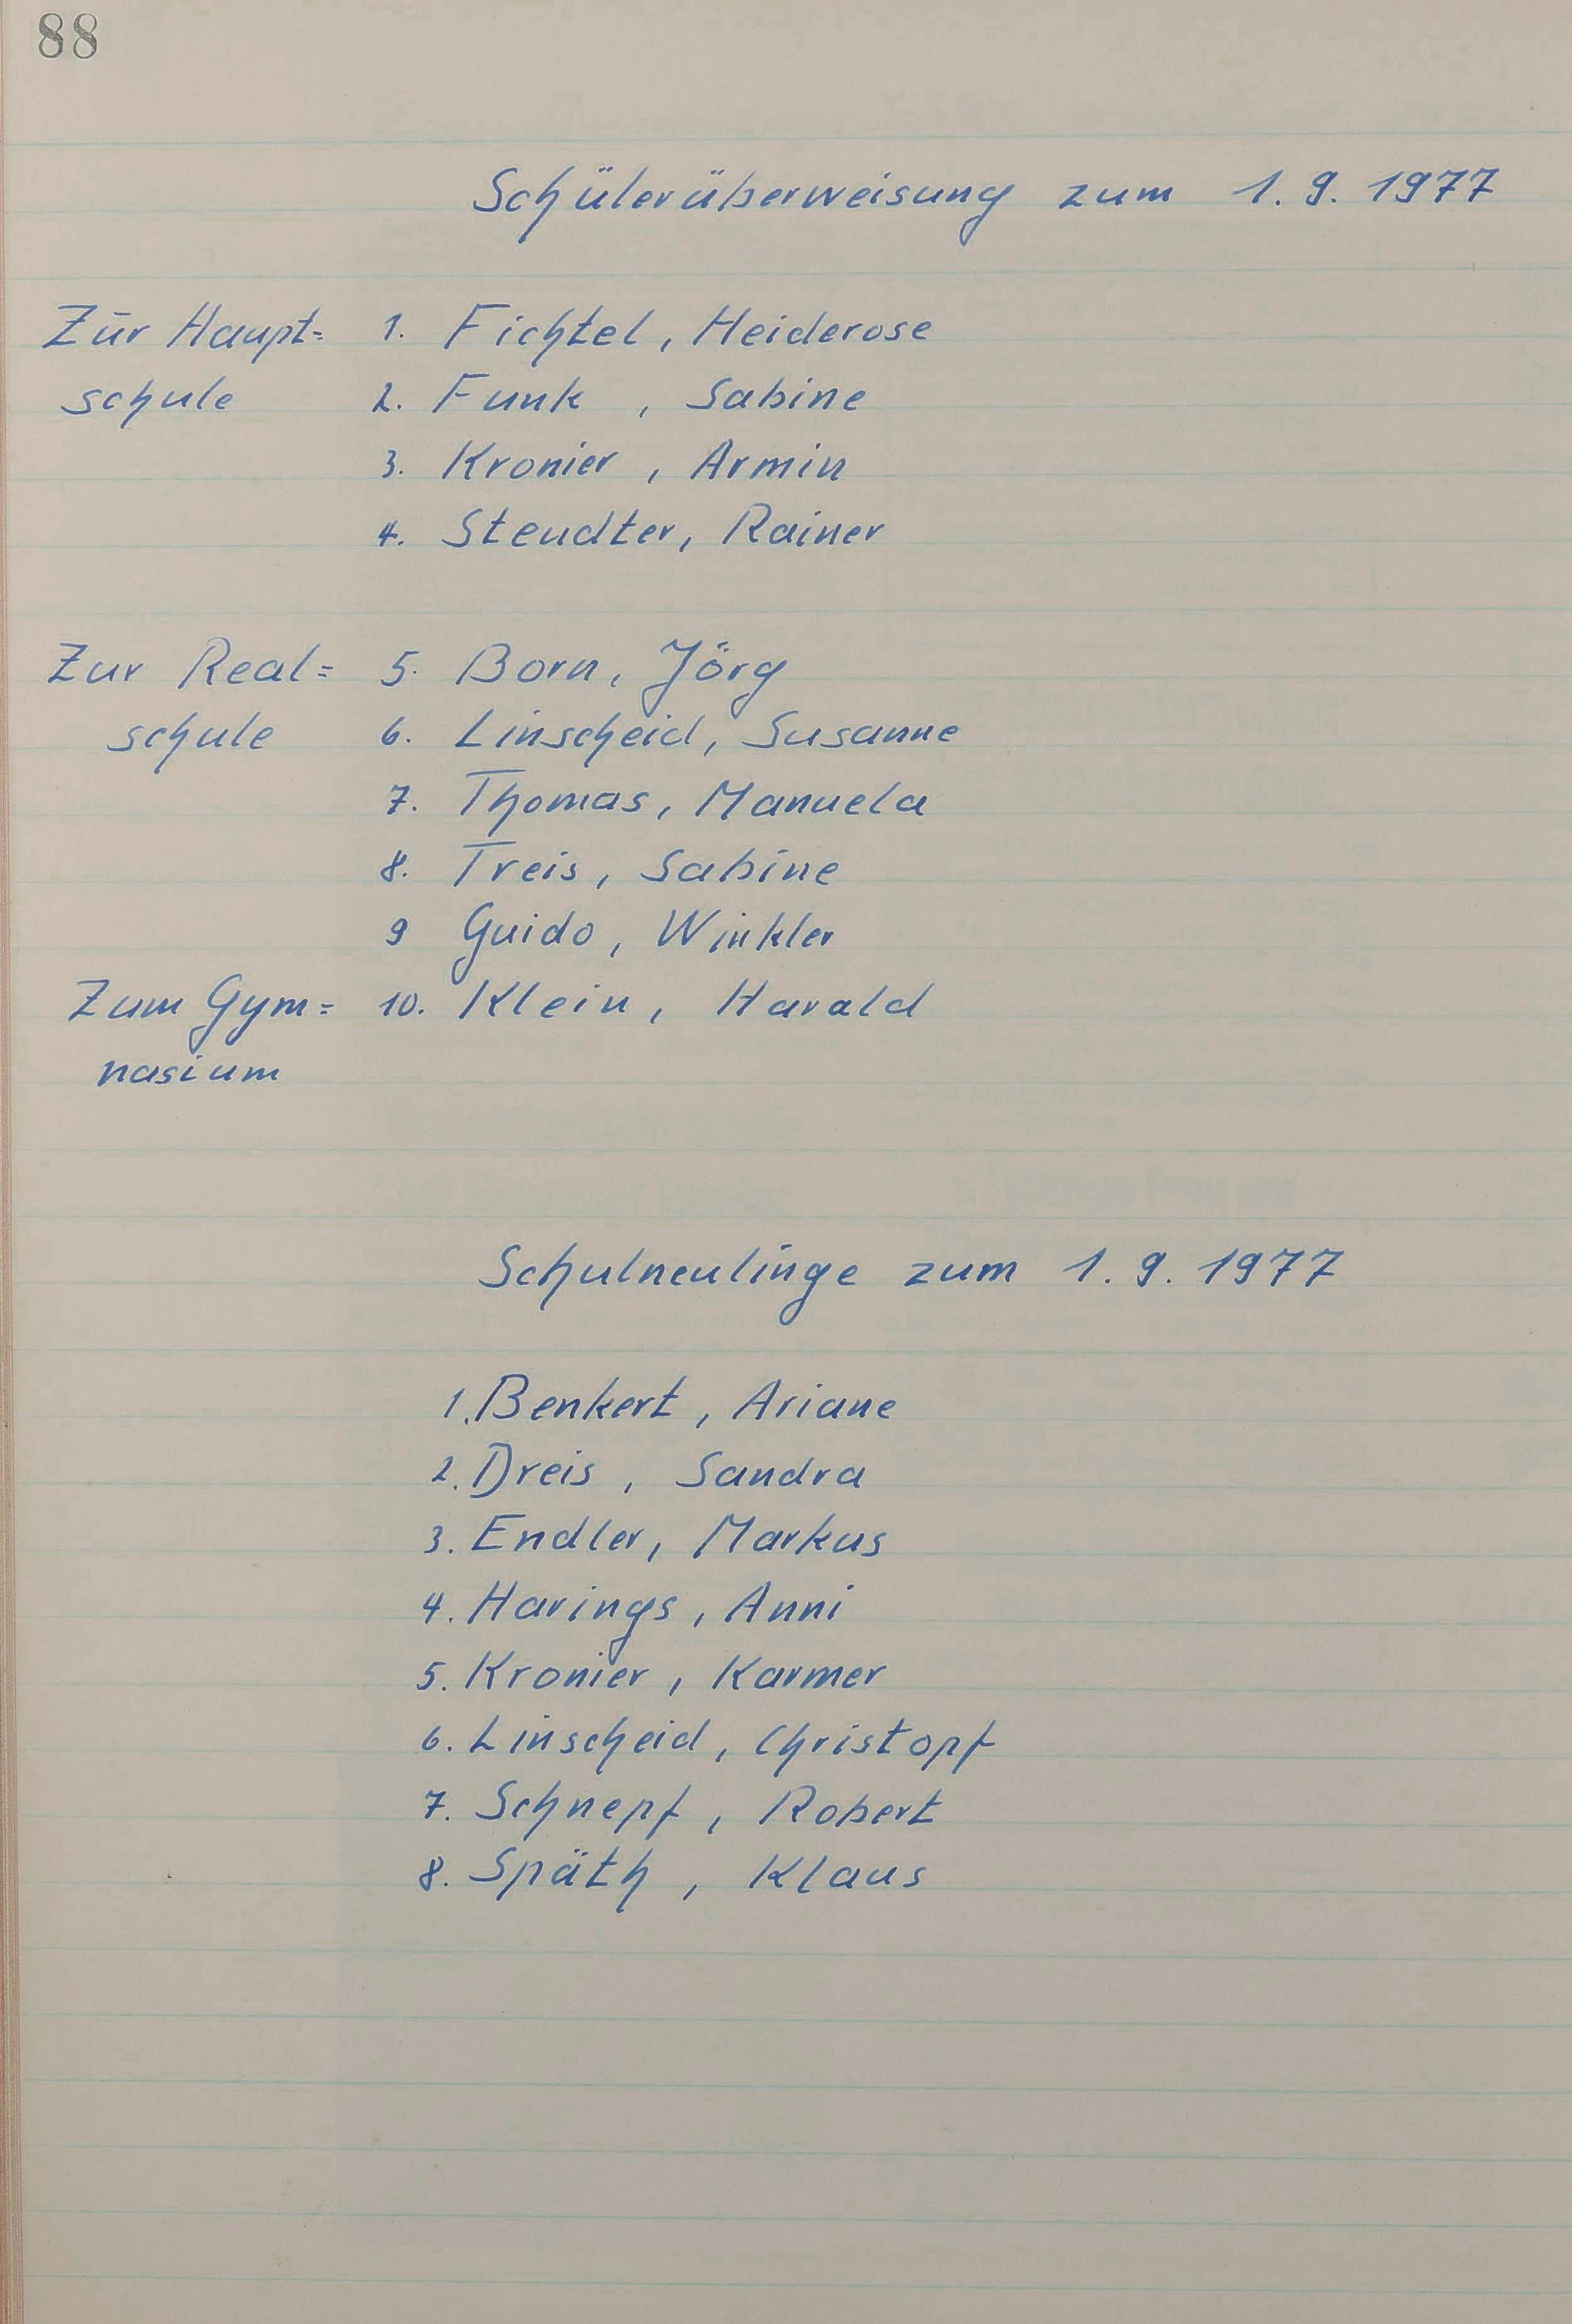 88
Schülerüberweisung zum 1. 9. 1977
Zur Haupt= 1. Fichtel, Heiderose
schule 2. Funk, Sabine
3. Kronier, Armin
4. Steudter, Rainer
Zur Real= 5. Born, Jörg
schule 6. Linscheid, Susanne
7. Thomas, Manuela
8. Treis, Sabine
9 Guido, Winkler
Zum Gym= 10. Klein, Harald
nasium
Schulneulinge zum 1. 9. 1977
1. Benkert, Ariane
2. Dreis, Sandra
3. Endler, Markus
4. Harings, Anni
5. Kronier, Karmer
6. Linscheid, Christopf
7. Schnepf, Robert
8. Späth, Klaus